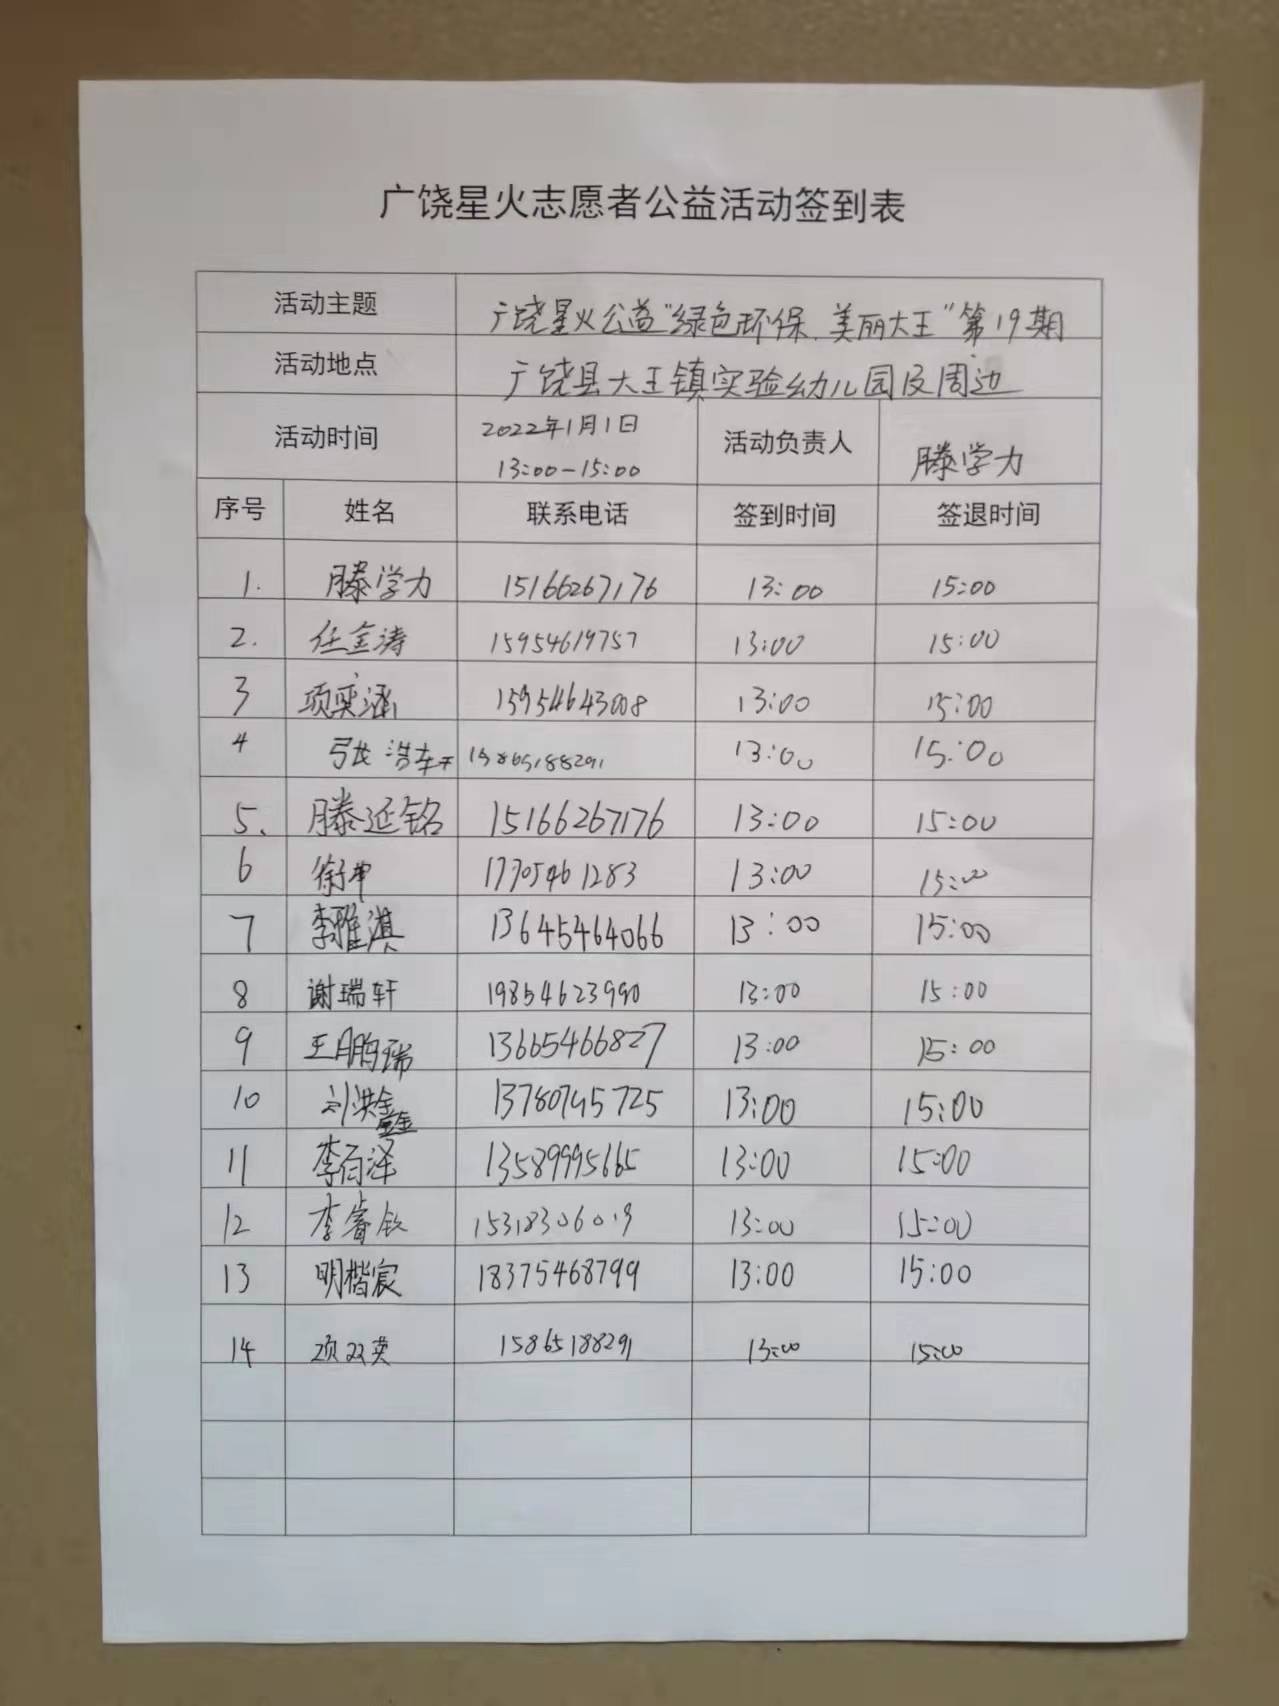 广饶星火志愿者公益活动签到表
活动主题 广饶星火公益"绿色环保、美丽大王"第19期
活动地点 广饶县大王镇实验幼儿园及周边
活动时间 2022年1月1日 13:00-15:00 活动负责人 滕学力
序号 姓名 联系电话 签到时间 签退时间
1. 滕学力 15166267176 13:00 15:00
2. 任金涛 15954619757 13:00 15:00
3 项奕涵 15954643008 13:00 15:00
4 张浩轩 15865188291 13:00 15:00
5、 滕延铭 15166267176 13:00 15:00
6 徐坤 17705461283 13:00 15:00
7 李雅淇 13645464066 13:00 15:00
8 谢瑞轩 19854623990 13:00 15:00
9 王鹏瑞 13665466827 13:00 15:00
10 刘洪鑫 13780745725 13:00 15:00
11 李百泽 13589995665 13:00 15:00
12 李睿钦 15318306019 13:00 15:00
13 明楷宸 18375468799 13:00 15:00
14 项双英 15865188291 13:00 15:00